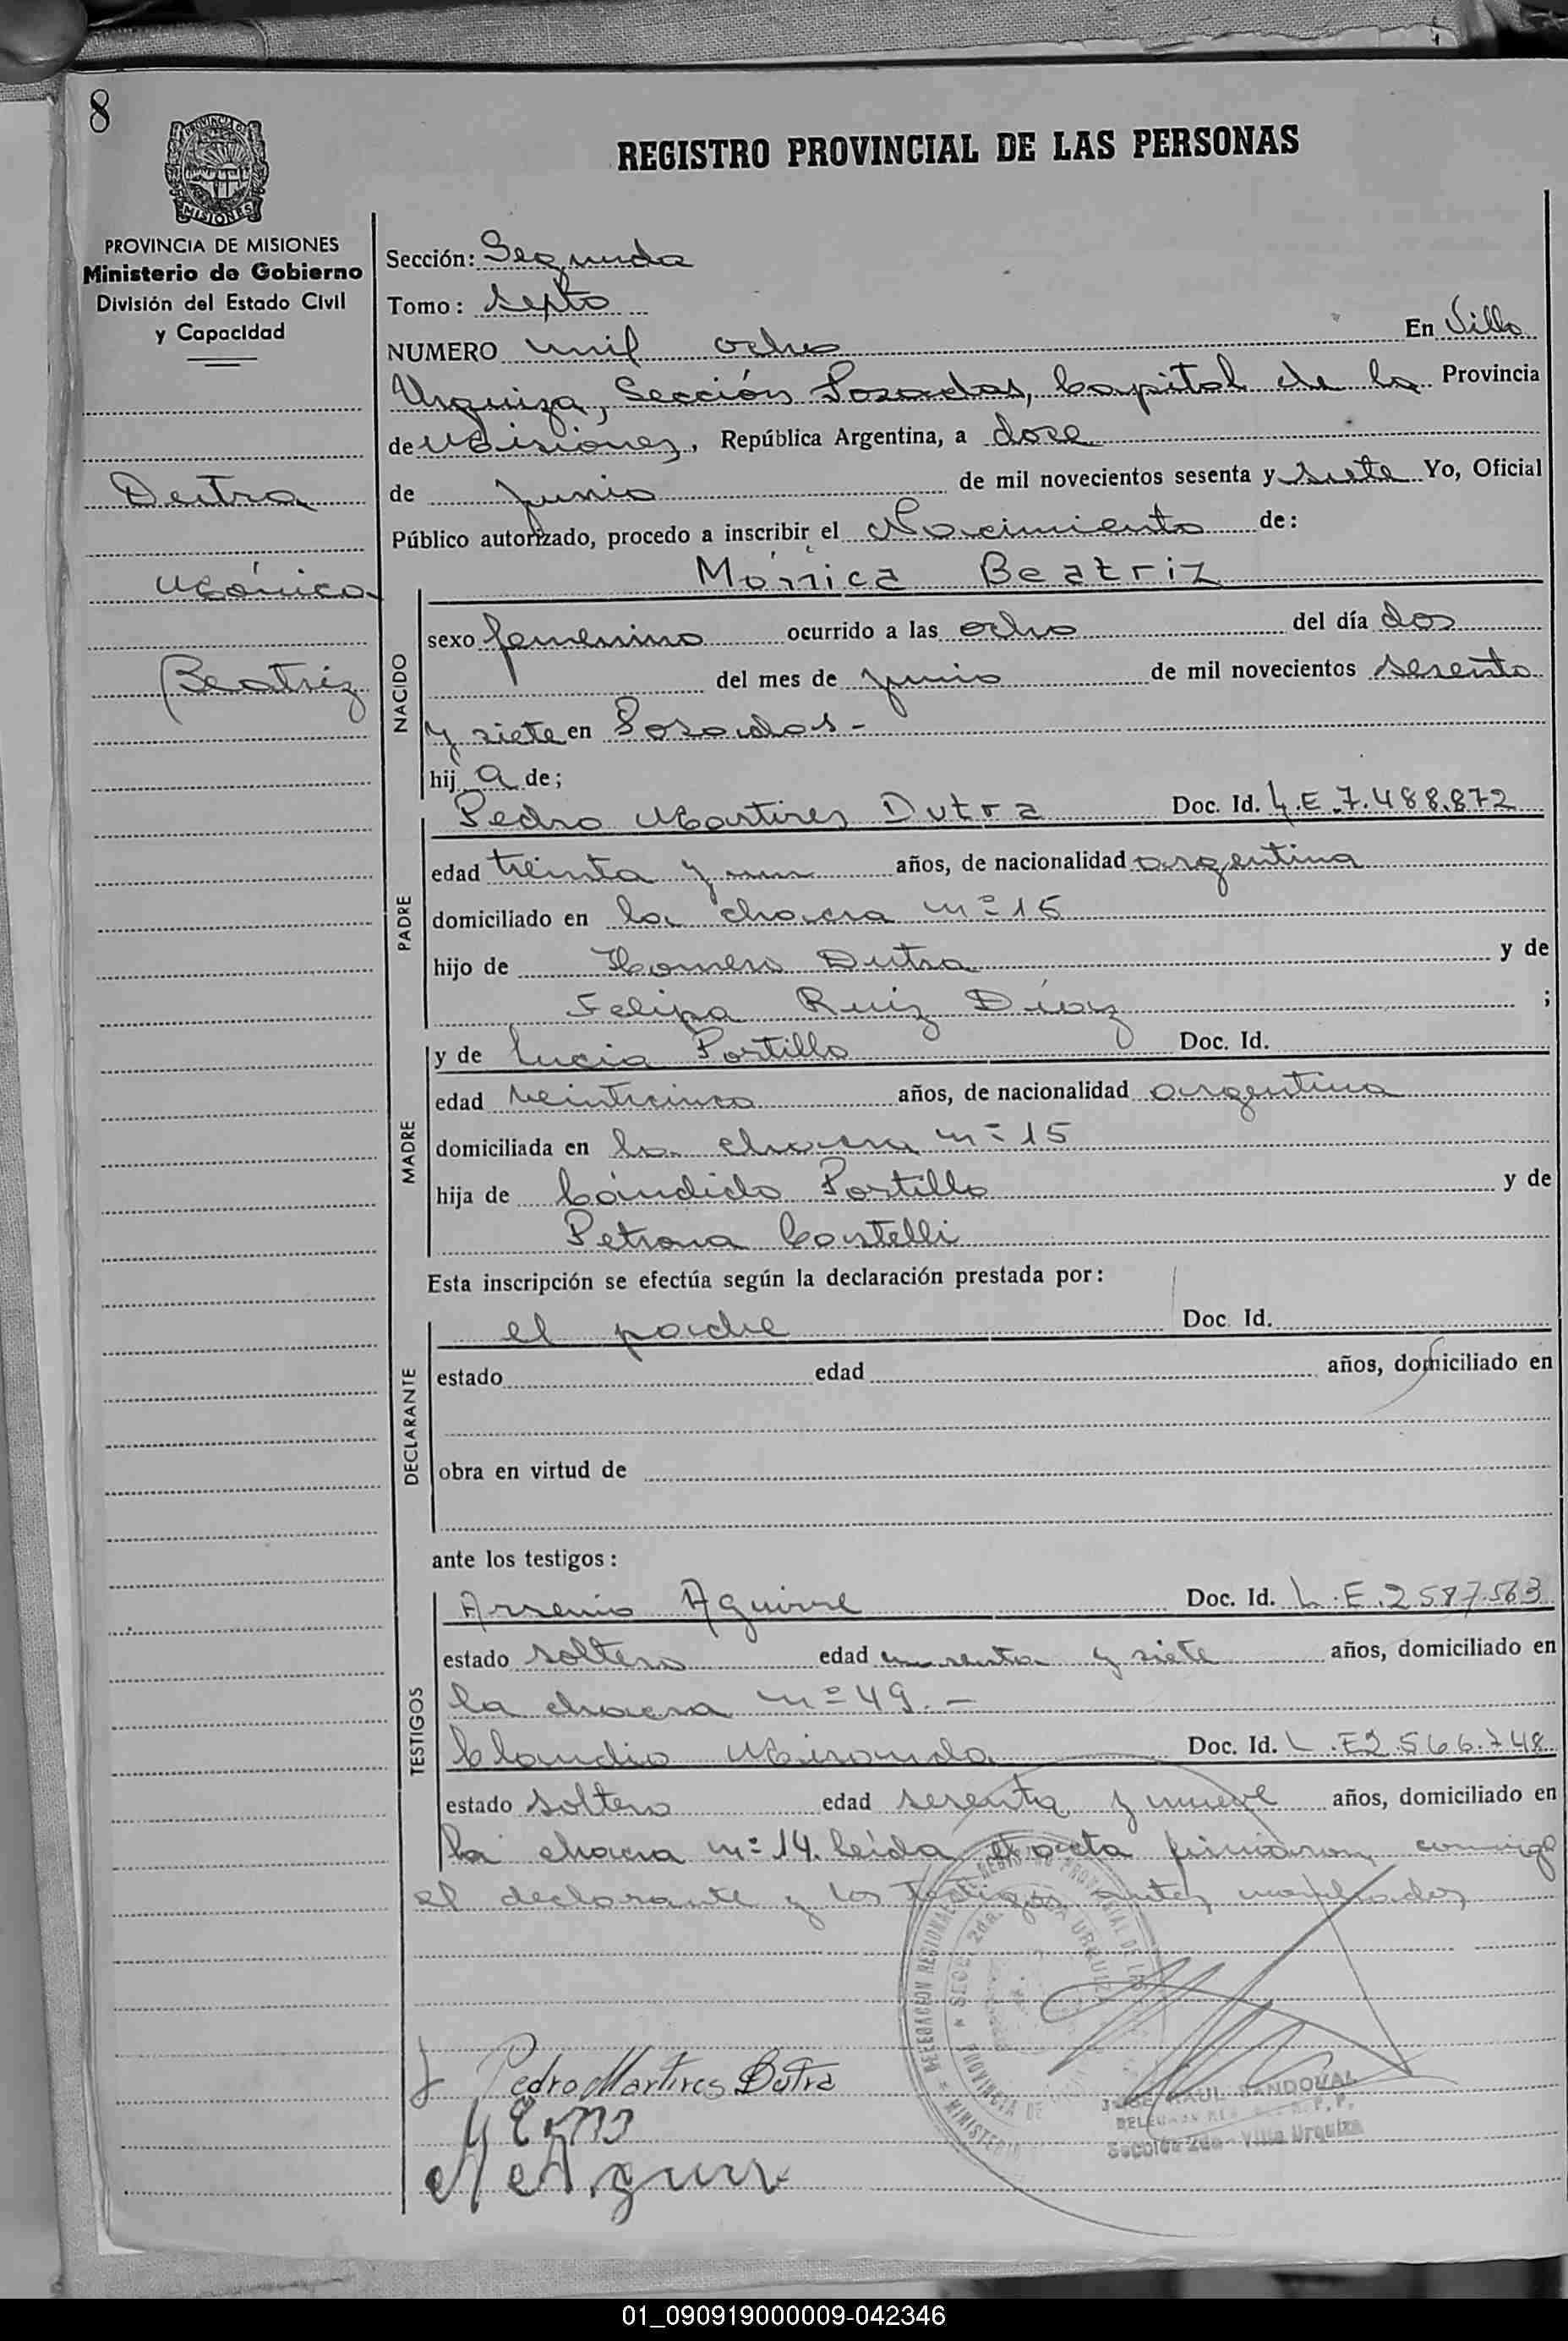 8
PROVINCIA DE MISIONES
Ministerio de Gobierno
División del Estado Civil
y Capacidad
REGISTRO PROVINCIAL DE LAS PERSONAS
Sección: Segunda
Tomo: septo
NUMERO mil ocho En Villa
Urquiza, Sección Posadas, Capital de la Provincia
de Misiones, República Argentina, a doce
de junio de mil novecientos sesenta y siete Yo, Oficial
Público autorizado, procedo a inscribir el Nacimiento de:
Dutra
Mónica
Beatriz
Mónica Beatriz
NACIDO
sexo femenino ocurrido a las ocho del día dos
del mes de junio de mil novecientos sesenta
y siete en Posadas -
hij a de;
Pedro Martires Dutra Doc. Id. L.E.7.488.872
PADRE
edad treinta y un años, de nacionalidad argentina
domiciliado en la chacra nº 15
hijo de Homero Dutra y de
Felipa Ruiz Díaz ;
y de Lucia Portillo Doc. Id.
MADRE
edad veinticinco años, de nacionalidad argentina
domiciliada en la chacra nº 15
hija de Cándido Portillo y de
Petrona Castelli
Esta inscripción se efectúa según la declaración prestada por:
el padre Doc. Id.
DECLARANTE
estado edad años, domiciliado en
obra en virtud de
ante los testigos:
Arsenio Aguirre Doc. Id. L.E.2.587.563
TESTIGOS
estado soltero edad y siete años, domiciliado en
la chacra nº 49.-
Claudio Miranda Doc. Id. L.E2.566.748
estado soltero edad sesenta y nueve años, domiciliado en
la chacra nº 14. leída el acta firmaron conmigo
el declarante y los testigos antes nombrados
Pedro Martires Dutra
JOSE RAUL SANDOVAL
Sección 2da - Villa Urquiza
01_090919000009-042346